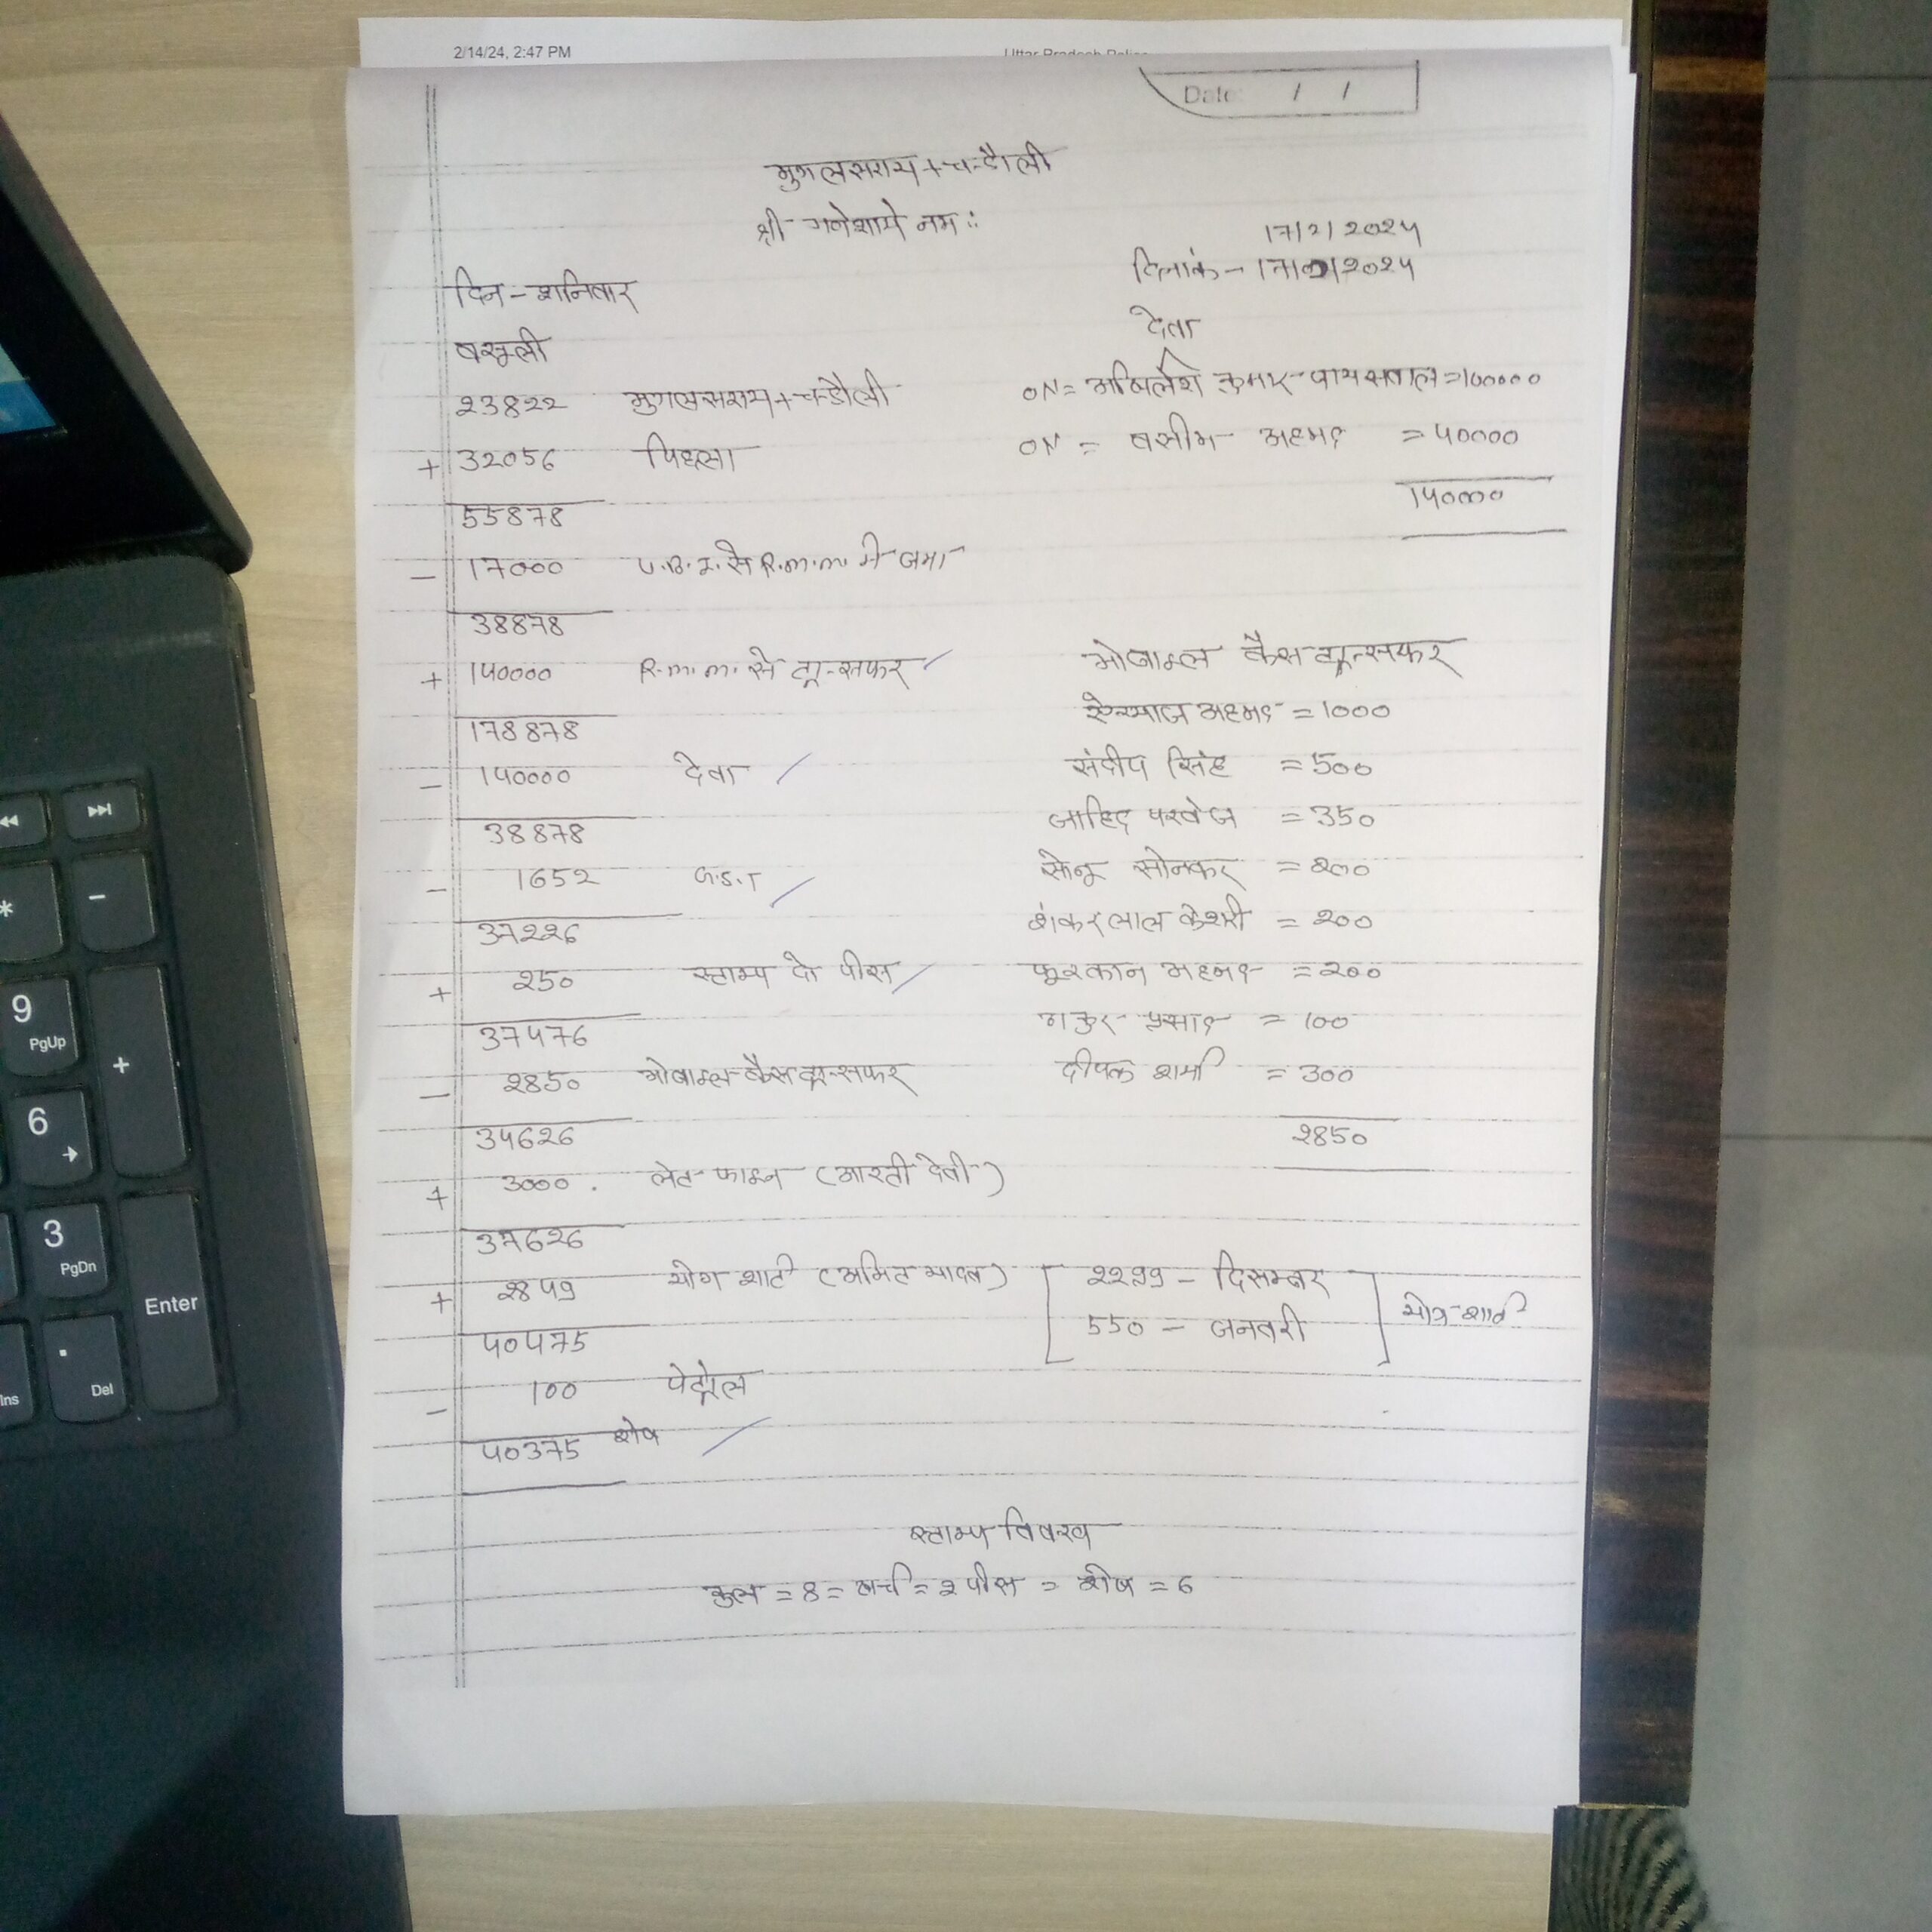 2/14/24, 2:47 PM
Date: / /
मुगलसराय + चन्दौली
श्री गणेशाये नमः:
17/2/2024
दिनांक - 17/02/2024
दिन - शनिवार
देता
वसूली
23822 मुगलसराय + चन्दौली
ON = अखिलेश कुमार = 100000
+ 32056 पिछला
ON = वसीम अहमद = 40000
55878
140000
- 17000 U.B.I. से R.m.m. मे जमा
38878
+ 140000 R.m.m. से ट्रान्सफर
मोबाइल कैस ट्रान्सफर
178878
अहमद = 1000
- 140000 देता
संदीप सिंह = 500
38878
जाहिद परवेज = 350
- 1652 G.S.T
सोनू सोनकर = 200
37226
शंकर लाल केशरी = 200
+ 250 स्टाम्प दो पीस
फूरकान अहमद = 200
37476
प्रसाद = 100
- 2850 मोबाइल कैस ट्रान्सफर
दीपक शर्मा = 300
34626
2850
+ 3000. लेट फाइन (आरती देवी)
37626
+ 2849 योग शार्ट (अमित यादव) [ 2299 - दिसम्बर
40475
550 - जनवरी ] योग शार्ट
- 100 पेट्रोल
40375 शेष
स्टाम्प विवरण
कुल = 8 = खर्च = 2 पीस = शेष = 6